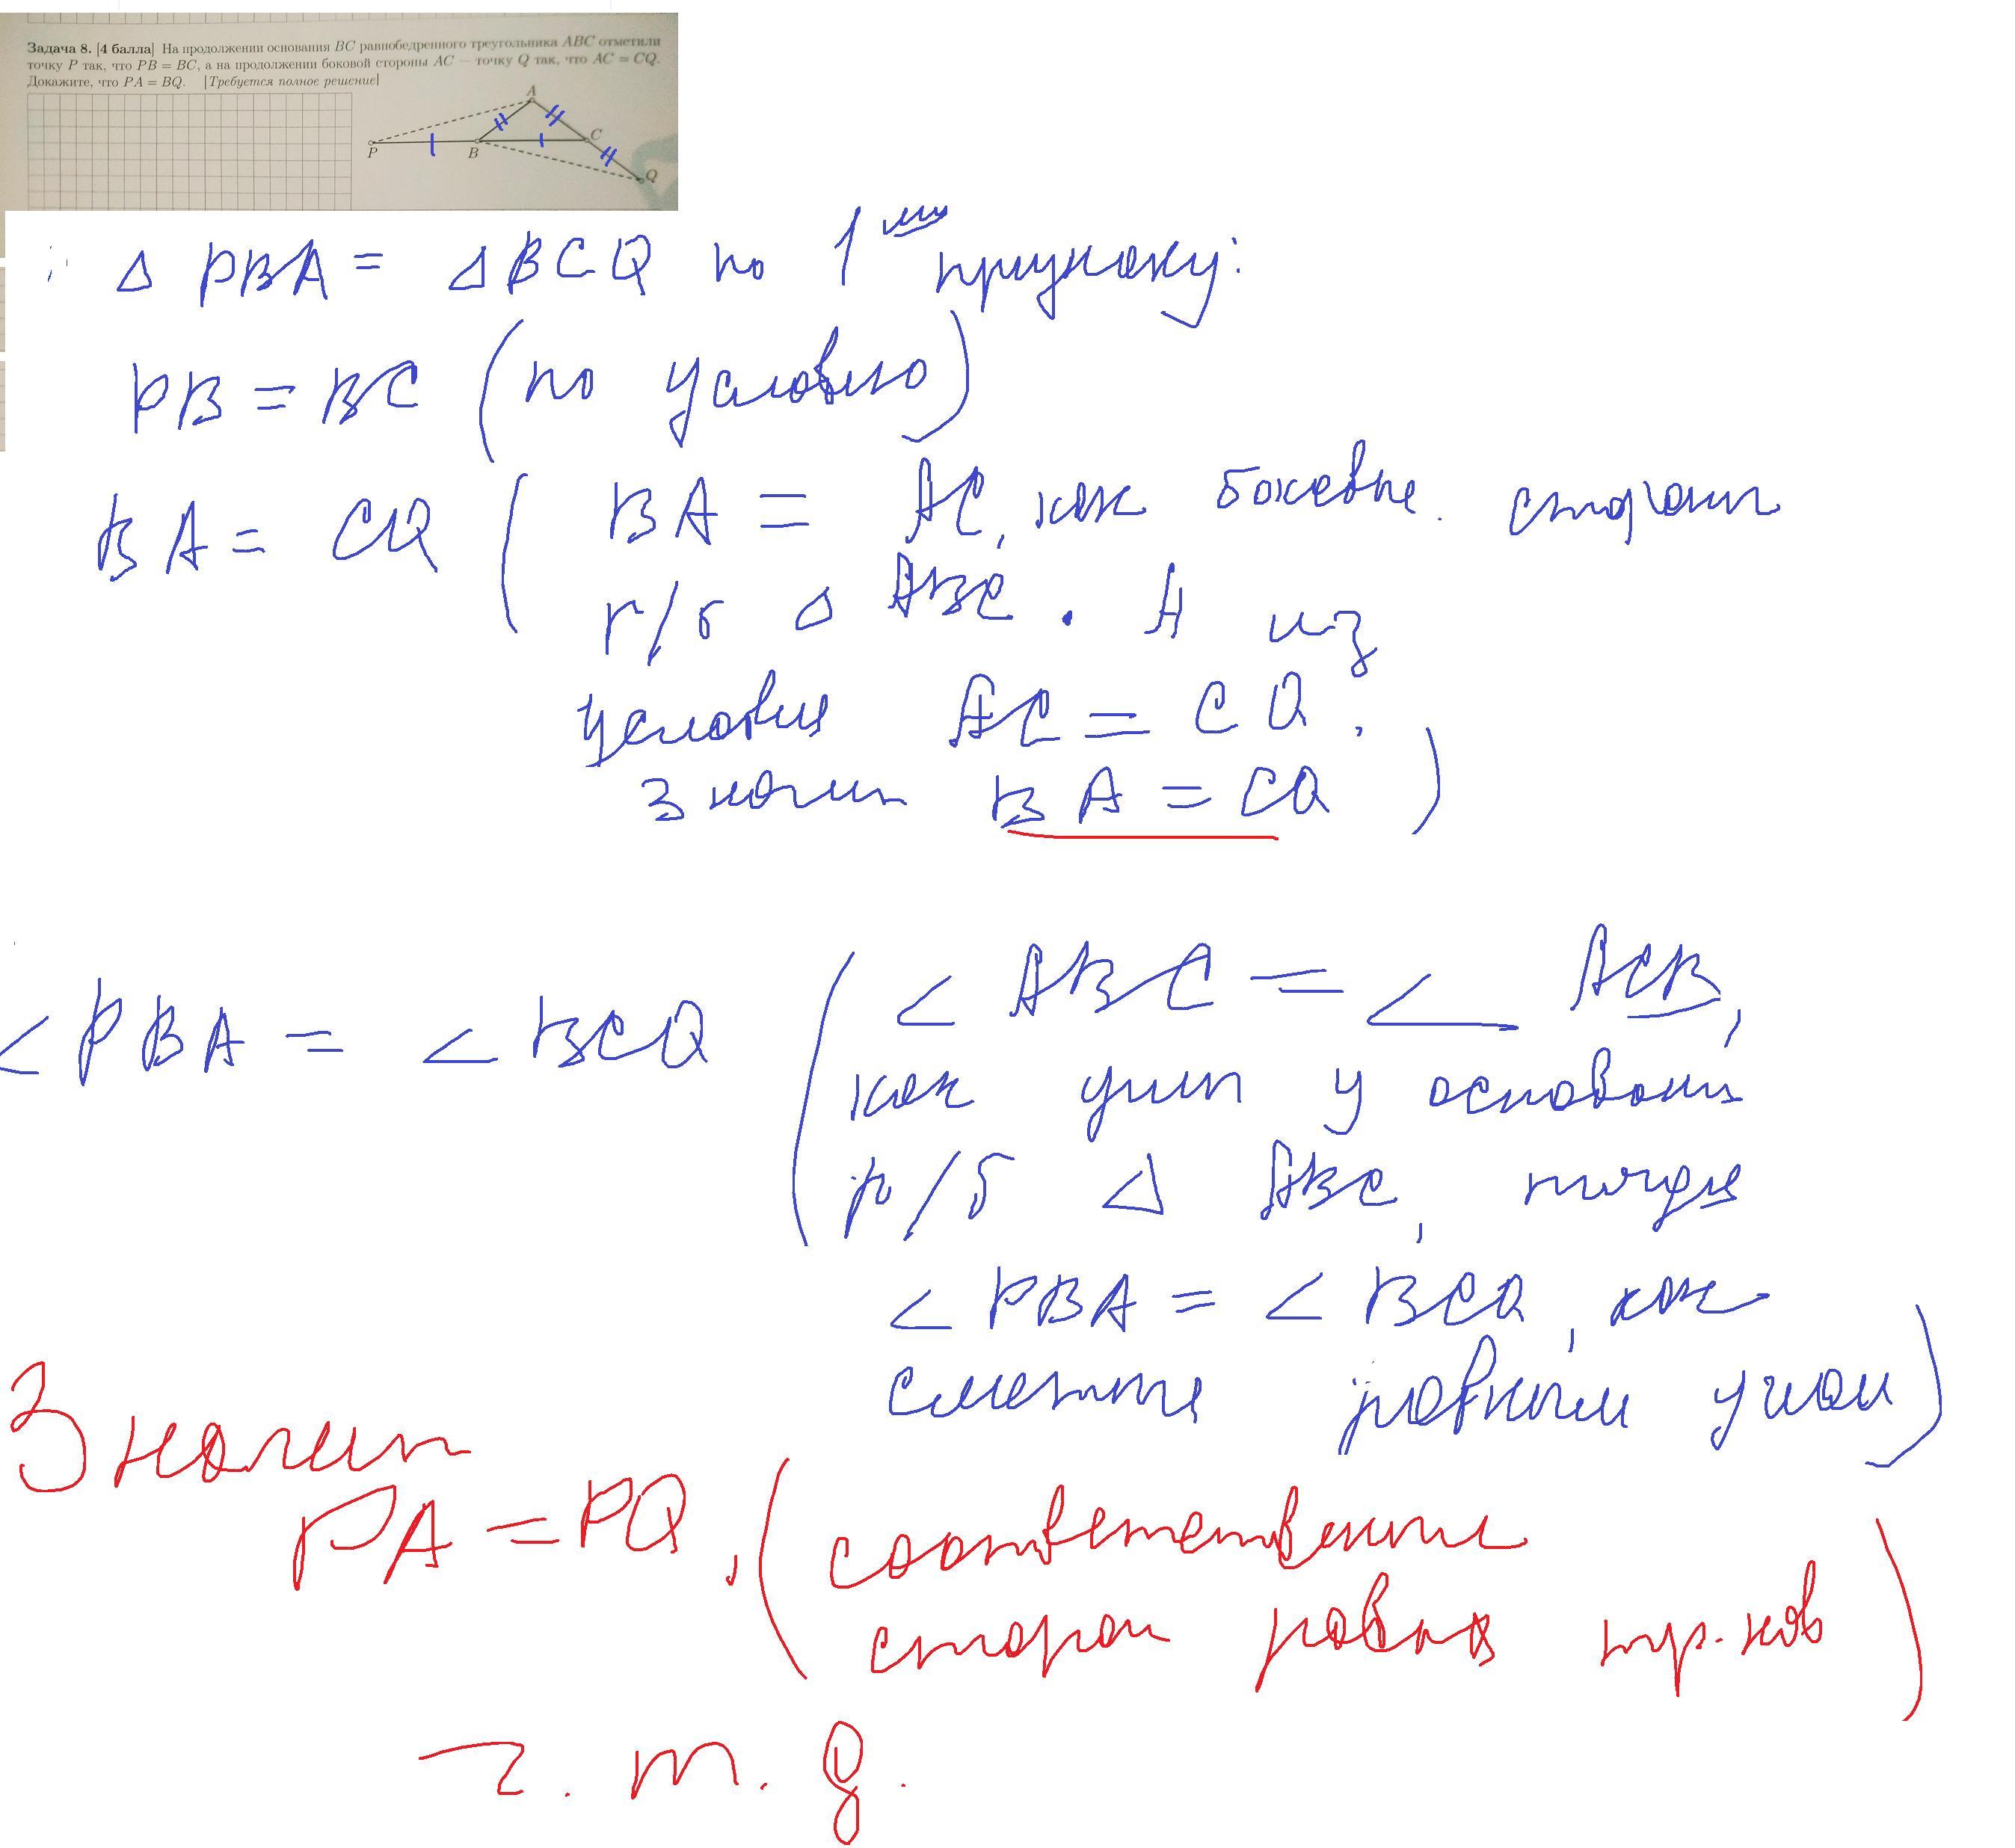 Задача 8. [4 балла] На продолжении основания BC равнобедренного треугольника ABC отметили
точку P так, что PB = BC, а на продолжении боковой стороны AC — точку Q так, что AC = CQ.
Докажите, что PA = BQ. [Требуется полное решение]
A
P
B
C
Q
Δ PBA = Δ BCQ по 1 му признаку:
PB = BC (по условию)
BA = CQ ( BA = AC, как боковые стороны
р/б Δ ABC. А из
условия AC = CQ.
Значит BA = CQ )
∠ PBA = ∠ BCQ ( ∠ ABC = ∠ ACB,
как углы у основания
р/б Δ ABC, тогда
∠ PBA = ∠ BCQ, как
смежные равным углам)
Значит
PA = PQ, (соответственные
стороны равных тр-ков)
ч. т. д.